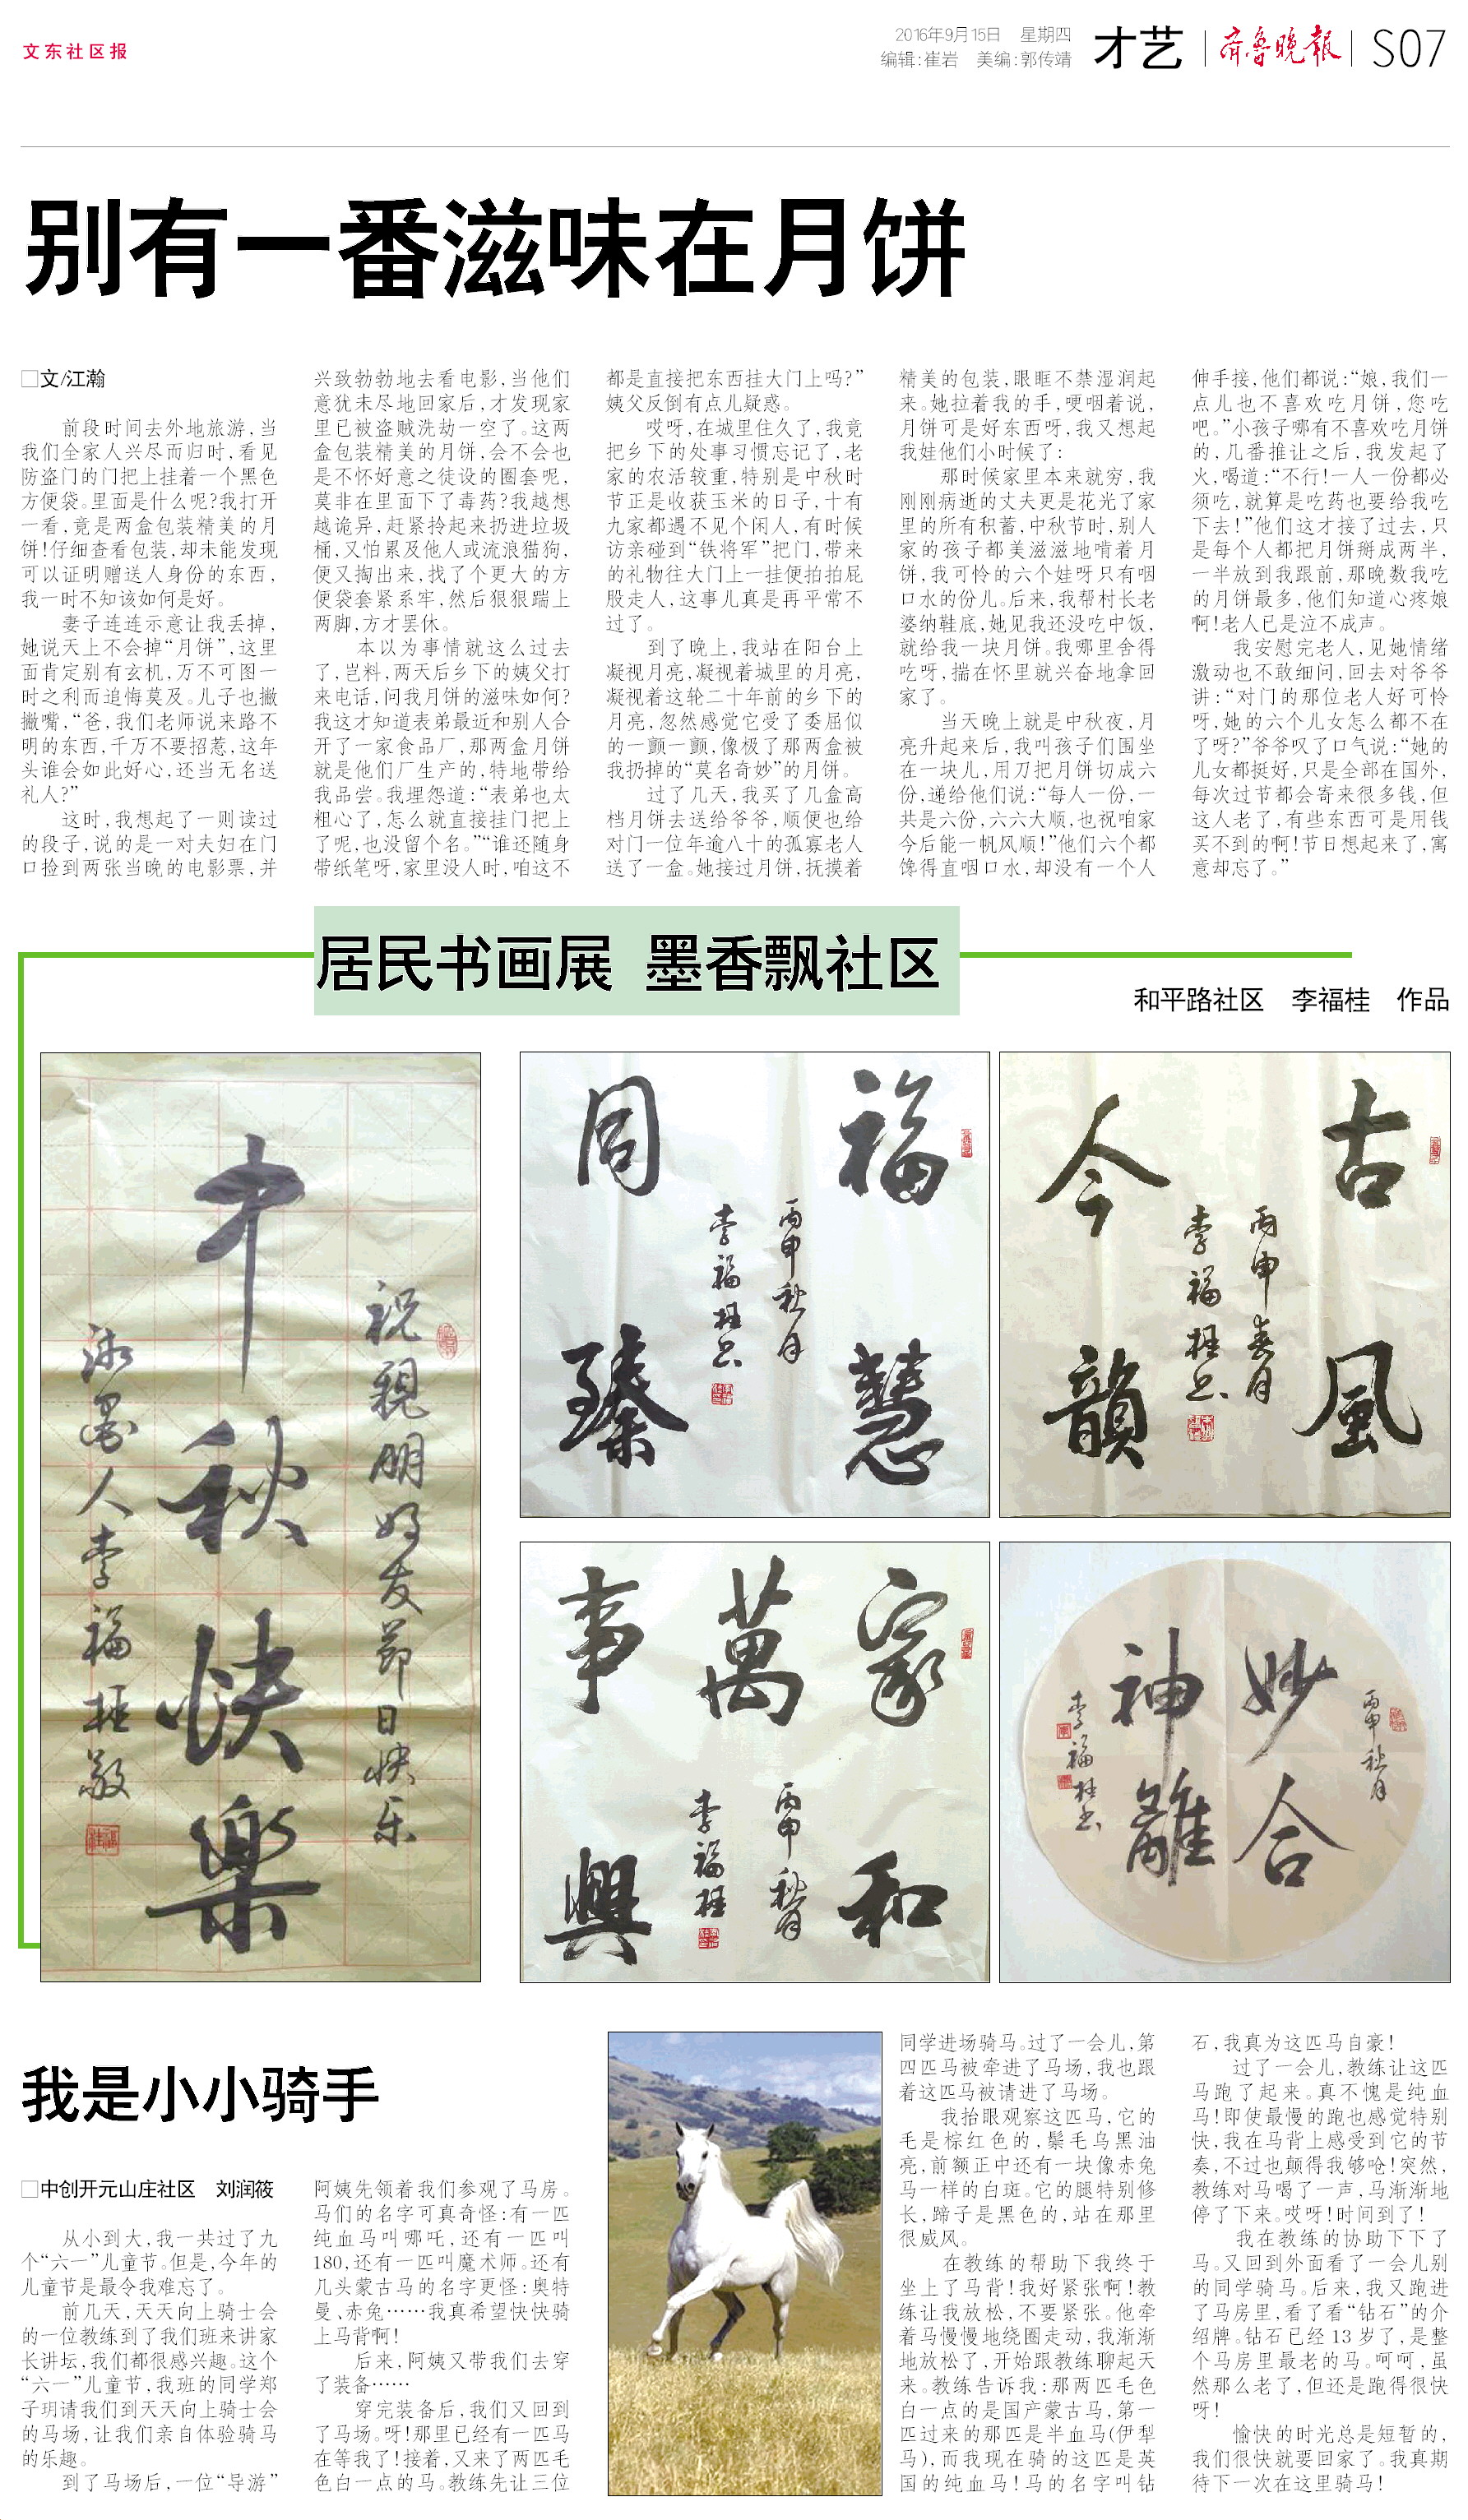 文东社区报
2016年9月15日 星期四
编辑:崔岩 美编:郭传靖
才艺
齐鲁晚报
S07
别有一番滋味在月饼
□文/江瀚
前段时间去外地旅游,当
我们全家人兴尽而归时,看见
防盗门的门把上挂着一个黑色
方便袋。里面是什么呢?我打开
一看,竟是两盒包装精美的月
饼!仔细查看包装,却未能发现
可以证明赠送人身份的东西,
我一时不知该如何是好。
妻子连连示意让我丢掉,
她说天上不会掉“月饼”,这里
面肯定别有玄机,万不可图一
时之利而追悔莫及。儿子也撇
撇嘴,“爸,我们老师说来路不
明的东西,千万不要招惹,这年
头谁会如此好心,还当无名送
礼人?”
这时,我想起了一则读过
的段子,说的是一对夫妇在门
口捡到两张当晚的电影票,并
兴致勃勃地去看电影,当他们
意犹未尽地回家后,才发现家
里已被盗贼洗劫一空了。这两
盒包装精美的月饼,会不会也
是不怀好意之徒设的圈套呢,
莫非在里面下了毒药?我越想
越诡异,赶紧拎起来扔进垃圾
桶,又怕累及他人或流浪猫狗,
便又掏出来,找了个更大的方
便袋套紧系牢,然后狠狠踹上
两脚,方才罢休。
本以为事情就这么过去
了,岂料,两天后乡下的姨父打
来电话,问我月饼的滋味如何?
我这才知道表弟最近和别人合
开了一家食品厂,那两盒月饼
就是他们厂生产的,特地带给
我品尝。我埋怨道:“表弟也太
粗心了,怎么就直接挂门把上
了呢,也没留个名。”“谁还随身
带纸笔呀,家里没人时,咱这不
都是直接把东西挂大门上吗?”
姨父反倒有点儿疑惑。
哎呀,在城里住久了,我竟
把乡下的处事习惯忘记了,老
家的农活较重,特别是中秋时
节正是收获玉米的日子,十有
九家都遇不见个闲人,有时候
访亲碰到“铁将军”把门,带来
的礼物往大门上一挂便拍拍屁
股走人,这事儿真是再平常不
过了。
到了晚上,我站在阳台上
凝视月亮,凝视着城里的月亮,
凝视着这轮二十年前的乡下的
月亮,忽然感觉它受了委屈似
的一颤一颤,像极了那两盒被
我扔掉的“莫名奇妙”的月饼。
过了几天,我买了几盒高
档月饼去送给爷爷,顺便也给
对门一位年逾八十的孤寡老人
送了一盒。她接过月饼,抚摸着
精美的包装,眼眶不禁湿润起
来。她拉着我的手,哽咽着说,
月饼可是好东西呀,我又想起
我娃他们小时候了:
那时候家里本来就穷,我
刚刚病逝的丈夫更是花光了家
里的所有积蓄,中秋节时,别人
家的孩子都美滋滋地啃着月
饼,我可怜的六个娃呀只有咽
口水的份儿。后来,我帮村长老
婆纳鞋底,她见我还没吃中饭,
就给我一块月饼。我哪里舍得
吃呀,揣在怀里就兴奋地拿回
家了。
当天晚上就是中秋夜,月
亮升起来后,我叫孩子们围坐
在一块儿,用刀把月饼切成六
份,递给他们说:“每人一份,一
共是六份,六六大顺,也祝咱家
今后能一帆风顺!”他们六个都
馋得直咽口水,却没有一个人
伸手接,他们都说:“娘,我们一
点儿也不喜欢吃月饼,您吃
吧。”小孩子哪有不喜欢吃月饼
的,几番推让之后,我发起了
火,喝道:“不行!一人一份都必
须吃,就算是吃药也要给我吃
下去!”他们这才接了过去,只
是每个人都把月饼掰成两半,
一半放到我跟前,那晚数我吃
的月饼最多,他们知道心疼娘
啊!老人已是泣不成声。
我安慰完老人,见她情绪
激动也不敢细问,回去对爷爷
讲:“对门的那位老人好可怜
呀,她的六个儿女怎么都不在
了呀?”爷爷叹了口气说:“她的
儿女都挺好,只是全部在国外,
每次过节都会寄来很多钱,但
这人老了,有些东西可是用钱
买不到的啊!节日想起来了,寓
意却忘了。”
居民书画展 墨香飘社区
和平路社区 李福桂 作品
祝親朋好友节日快乐
中秋快樂
泳墨人李福桂敬
福慧
同臻
丙申秋月
李福桂书
古風
今韻
丙申春月
李福桂书
家和
萬
事興
丙申秋月
李福桂
丙申秋月
妙合
神離
李福桂书
我是小小骑手
□中创开元山庄社区 刘润筱
从小到大,我一共过了九
个“六一”儿童节。但是,今年的
儿童节是最令我难忘了。
前几天,天天向上骑士会
的一位教练到了我们班来讲家
长讲坛,我们都很感兴趣。这个
“六一”儿童节,我班的同学郑
子玥请我们到天天向上骑士会
的马场,让我们亲自体验骑马
的乐趣。
到了马场后,一位“导游”
阿姨先领着我们参观了马房。
马们的名字可真奇怪:有一匹
纯血马叫哪吒,还有一匹叫
180,还有一匹叫魔术师。还有
几头蒙古马的名字更怪:奥特
曼、赤兔……我真希望快快骑
上马背啊!
后来,阿姨又带我们去穿
了装备……
穿完装备后,我们又回到
了马场。呀!那里已经有一匹马
在等我了!接着,又来了两匹毛
色白一点的马。教练先让三位
同学进场骑马。过了一会儿,第
四匹马被牵进了马场,我也跟
着这匹马被请进了马场。
我抬眼观察这匹马,它的
毛是棕红色的,鬃毛乌黑油
亮,前额正中还有一块像赤兔
马一样的白斑。它的腿特别修
长,蹄子是黑色的,站在那里
很威风。
在教练的帮助下我终于
坐上了马背!我好紧张啊!教
练让我放松,不要紧张。他牵
着马慢慢地绕圈走动,我渐渐
地放松了,开始跟教练聊起天
来。教练告诉我:那两匹毛色
白一点的是国产蒙古马,第一
匹过来的那匹是半血马(伊犁
马),而我现在骑的这匹是英
国的纯血马!马的名字叫钻
石,我真为这匹马自豪!
过了一会儿,教练让这匹
马跑了起来。真不愧是纯血
马!即使最慢的跑也感觉特别
快,我在马背上感受到它的节
奏,不过也颠得我够呛!突然,
教练对马喝了一声,马渐渐地
停了下来。哎呀!时间到了!
我在教练的协助下下了
马。又回到外面看了一会儿别
的同学骑马。后来,我又跑进
了马房里,看了看“钻石”的介
绍牌。钻石已经13岁了,是整
个马房里最老的马。呵呵,虽
然那么老了,但还是跑得很快
呀!
愉快的时光总是短暂的,
我们很快就要回家了。我真期
待下一次在这里骑马!